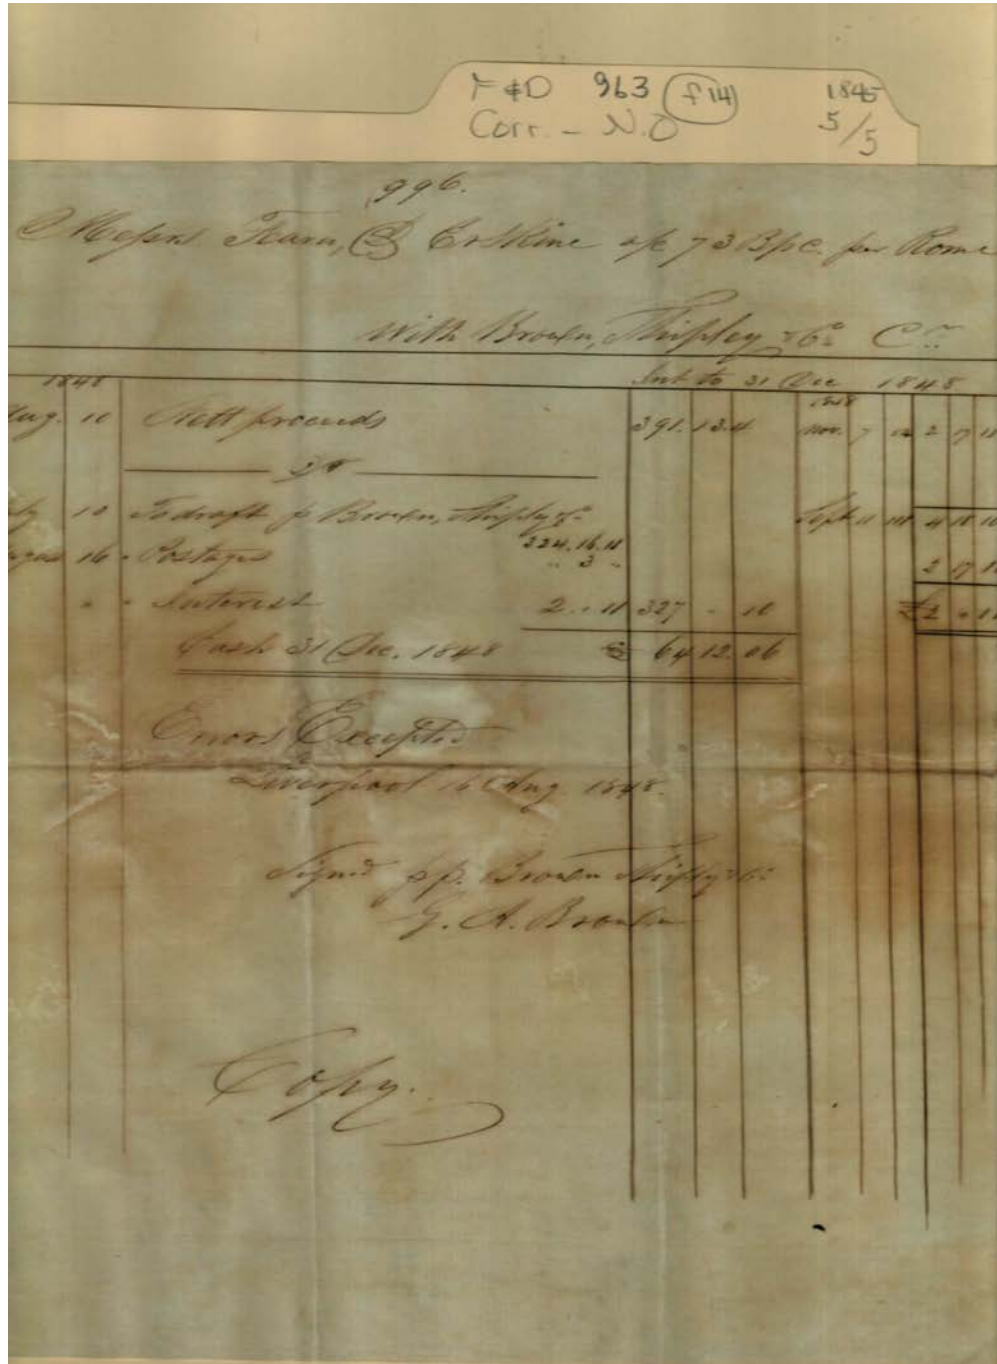 F & D 963 (f 14) 1845
Corr. - N.O 5/5
996.
Messrs Fearn, & Erskine a/c 73 B/C. per Rome
With Brown, Shipley & Co. Cr.
1848 Int to 31 Dec 1848
1848
Aug. 10 Nett proceeds 391.13.4 Nov. 7 2 17 11
10 To draft p Brown, Shipley & Co Sept 11 4 18 10
324.16.11
16 " Postages " 3 " 2 17 11
" " Interest 2 . " 11 327 " 10 £2 " 11
Cash 31 Dec. 1848 £ 64 12. 06
Errors Excepted
Liverpool 16 Aug 1848.
Signed pp. Brown Shipley & Co
G. A. Brown
Copy.